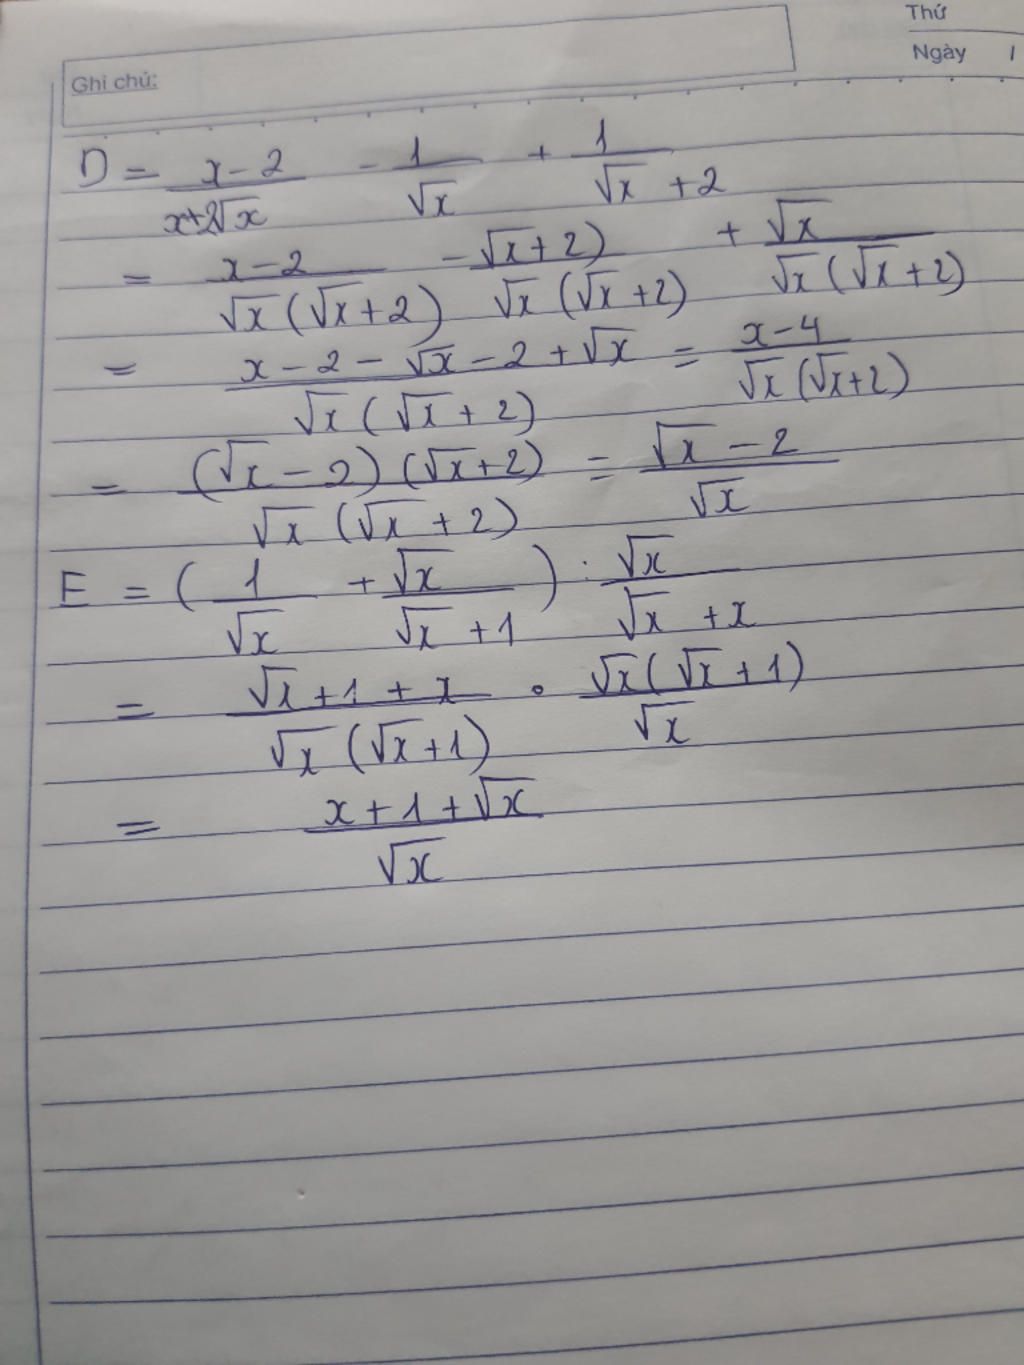 Thứ
Ngày /
Ghi chú:
D = (x-2)/(x+2√x) - 1/√x + 1/(√x + 2)
= (x-2)/(√x(√x+2)) - √x+2)/(√x(√x+2)) + √x/(√x(√x+2))
= (x-2-√x-2+√x)/(√x(√x+2)) = (x-4)/(√x(√x+2))
= (√x-2)(√x+2)/(√x(√x+2)) = (√x-2)/√x
E = (1/√x + √x/(√x+1)) : √x/(√x+x)
= (√x+1+x)/(√x(√x+1)) . √x(√x+1)/√x
= (x+1+√x)/√x